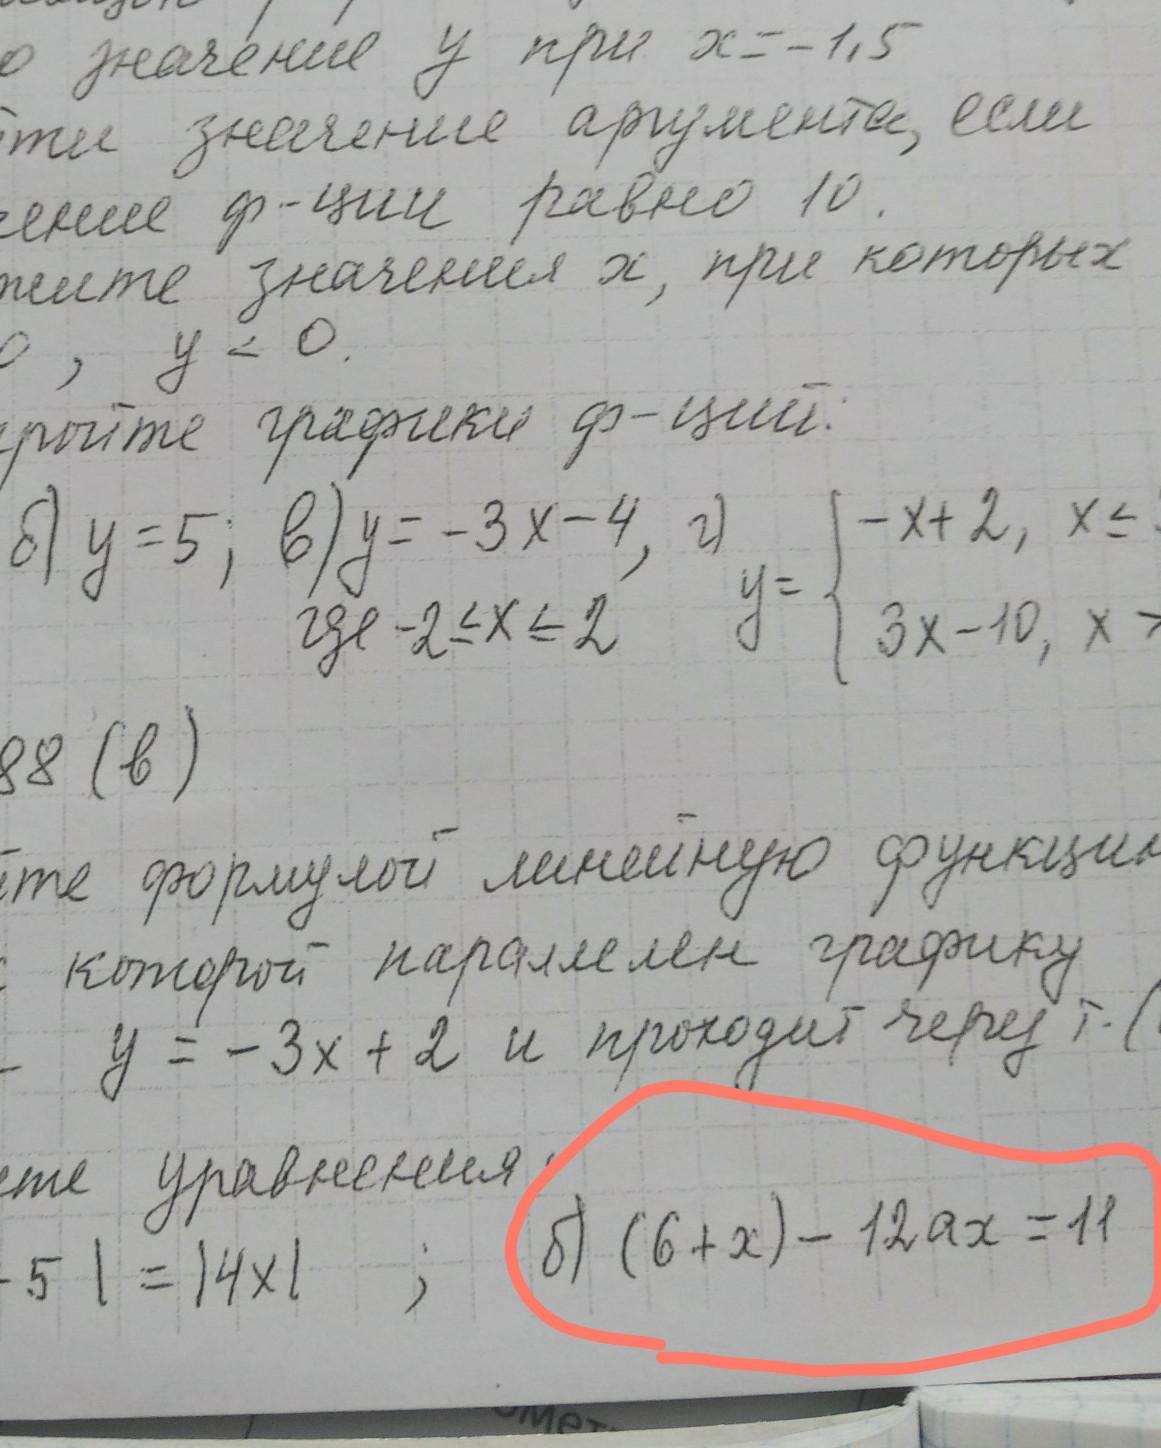 значение y при x=-1,5
значение аргумента, если
ф-ции равно 10.
значения x, при которых
0, y < 0.
графики ф-ций:
б) y=5; в) y=-3x-4, г) y= { -x+2, x≤
где -2≤x≤2 3x-10, x >
88 (в)
формулой линейную функци
которой параллелен графику
y = -3x+2 и проходит через т. (
уравнения:
-5| = |4x| ; б) (6+x) - 12ax = 11